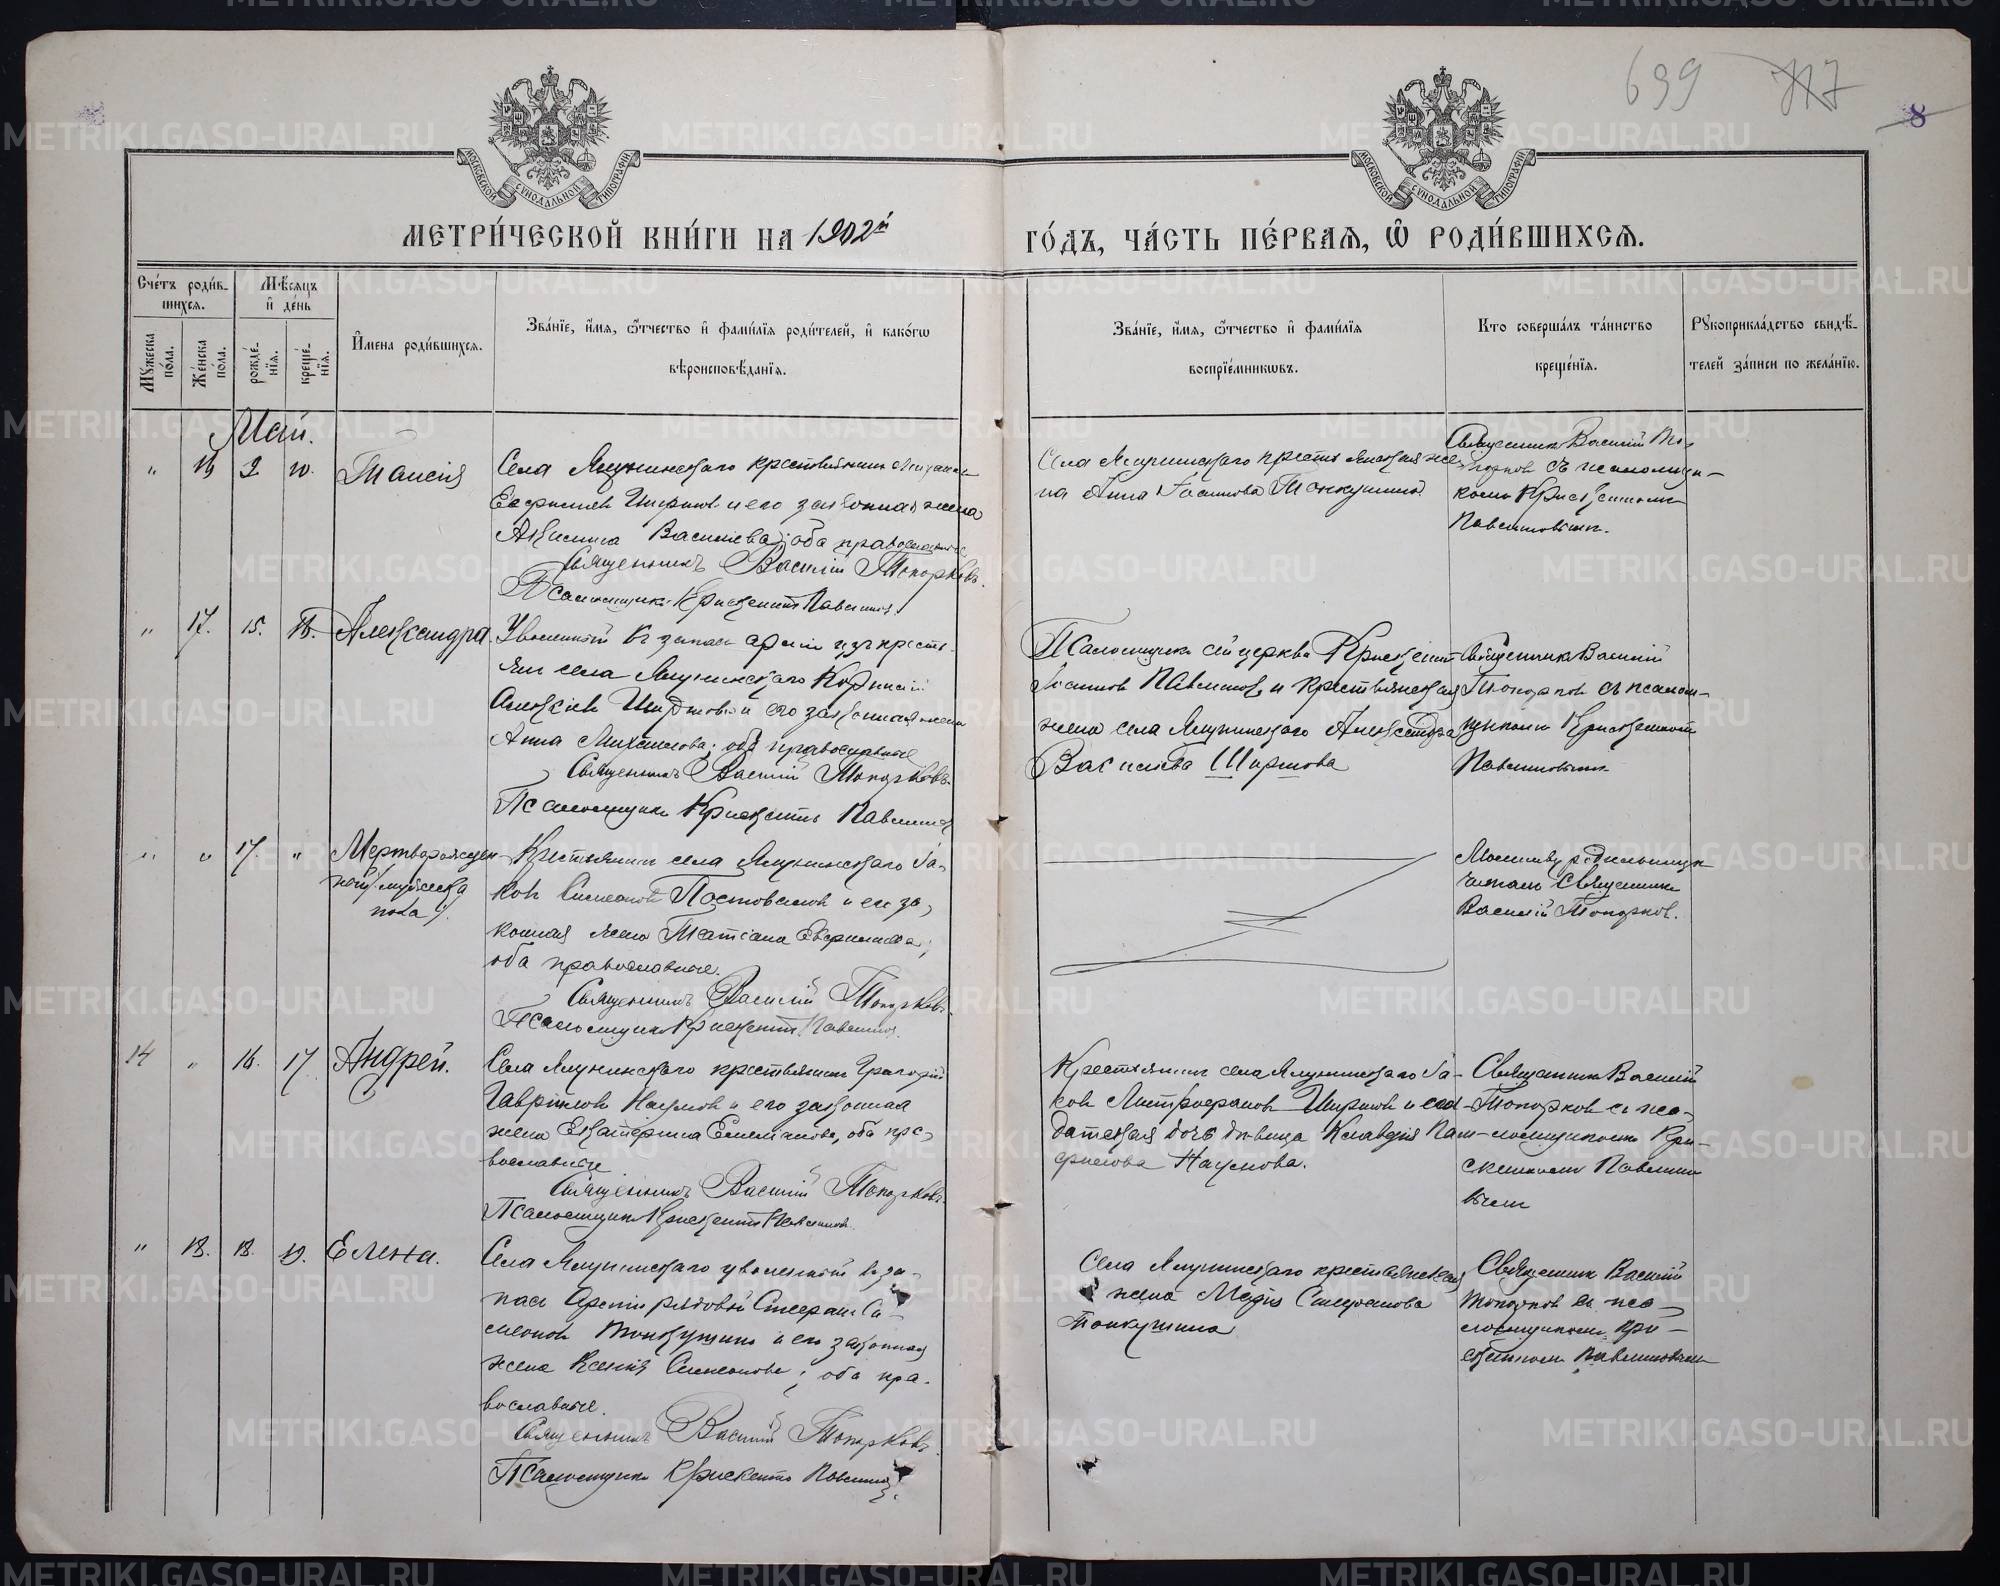 699 717
8
МОСКОВСКОЙ СѴНОДАЛЬНОЙ ТИПОГРАФІИ
МОСКОВСКОЙ СѴНОДАЛЬНОЙ ТИПОГРАФІИ
МЕТРИ́ЧЕСКОЙ КНИ́ГИ НА 1902й ГО́ДЪ, ЧА́СТЬ ПЕ́РВАЯ, Ѡ҆ РОДИ́ВШИХСЯ.
Сче́тъ роди́в-
шихся.
Мѣ́сяцъ
и҆ де́нь
Мꙋ́жеска
по́ла.
Же́нска
по́ла.
рожде́-
нїя.
креще́-
нїя.
И҆мена роди́вшихся.
Зва́нїе, и҆́мя, ѻ҆́тчество и҆ фами́лїя роди́телей, и҆ како́гѡ
вѣроисповѣ́данїя.
Зва́нїе, и҆́мя, ѻ҆́тчество и҆ фами́лїя
воспрїе́мникѡвъ.
Кто соверша́лъ та́инство
креще́нїя.
Рꙋкоприкла́дство свидѣ́-
телей за́писи по жела́нїю.
Май.
" 16 9 10. Таисія
Села Ялунинскаго крестьянинъ
Ширшов и его законная жена
Василиева; оба православные
Священникъ Василій Топорковъ.
Псаломщикъ Крискентъ Павлинов
Села Ялунинскаго крестьянская же-
на Анна Іоаннова Тонкушина
Священник Василий То-
порков съ псаломщи-
ком Крискентом
Павлиновым.
" 17. 15. 16. Александра
Уволенный въ запас армии из кресть-
ян села Ялунинскаго
Алексіев Ширшов и его законная жена
Анна Михаилова; оба православные
Священникъ Василій Топорковъ.
Псаломщикъ Крискентъ Павлинов
Псаломщик сей церкви Крискент
Іоаннов Павлинов и крестьянская
жена села Ялунинскаго Александра
Василиева Ширшова
Священник Василий
Топорков съ псалом-
щиком Крискентом
Павлиновым
" " 17. " Мертворожден-
ный /мужеска
пола/.
Крестьянин села Ялунинскаго Іа-
ков Симеонов Постовалов и его за-
конная жена Татіана
оба православные.
Священникъ Василій Топорковъ.
Псаломщик Крискентъ Павлинов.
Молитву родильнице
читал Священник
Василий Топорков.
14 " 16. 17. Андрей.
Села Ялунинскаго крестьянин Григорий
Гавриилов Наумов и его законная
жена Екатерина Емелианова, оба пра-
вославные
Священникъ Василій Топорковъ.
Псаломщик Крискентъ Павлинов.
Крестьянин села Ялунинскаго Іа-
ков Митрофанов Ширшов и сол-
датская дочь девица Клавдия Пам-
филова Наумова.
Священник Василий
Топорков с пса-
ломщиком Кри-
скентом Павлино-
вым
" 18. 18. 19. Елена.
Села Ялунинскаго уволенный в за-
пас Армии рядовой Стефан Си-
меонов Тонкушин и его законная
жена Ксения Симеонова; оба пра-
вославные.
Священникъ Василій Топорковъ.
Псаломщик Крискентъ Павлинов.
Села Ялунинскаго крестьянская
жена Мария Стефанова
Тонкушина
Священник Василий
Топорков съ пса-
ломщиком Кри-
скентом Павлиновым
METRIKI.GASO-URAL.RU